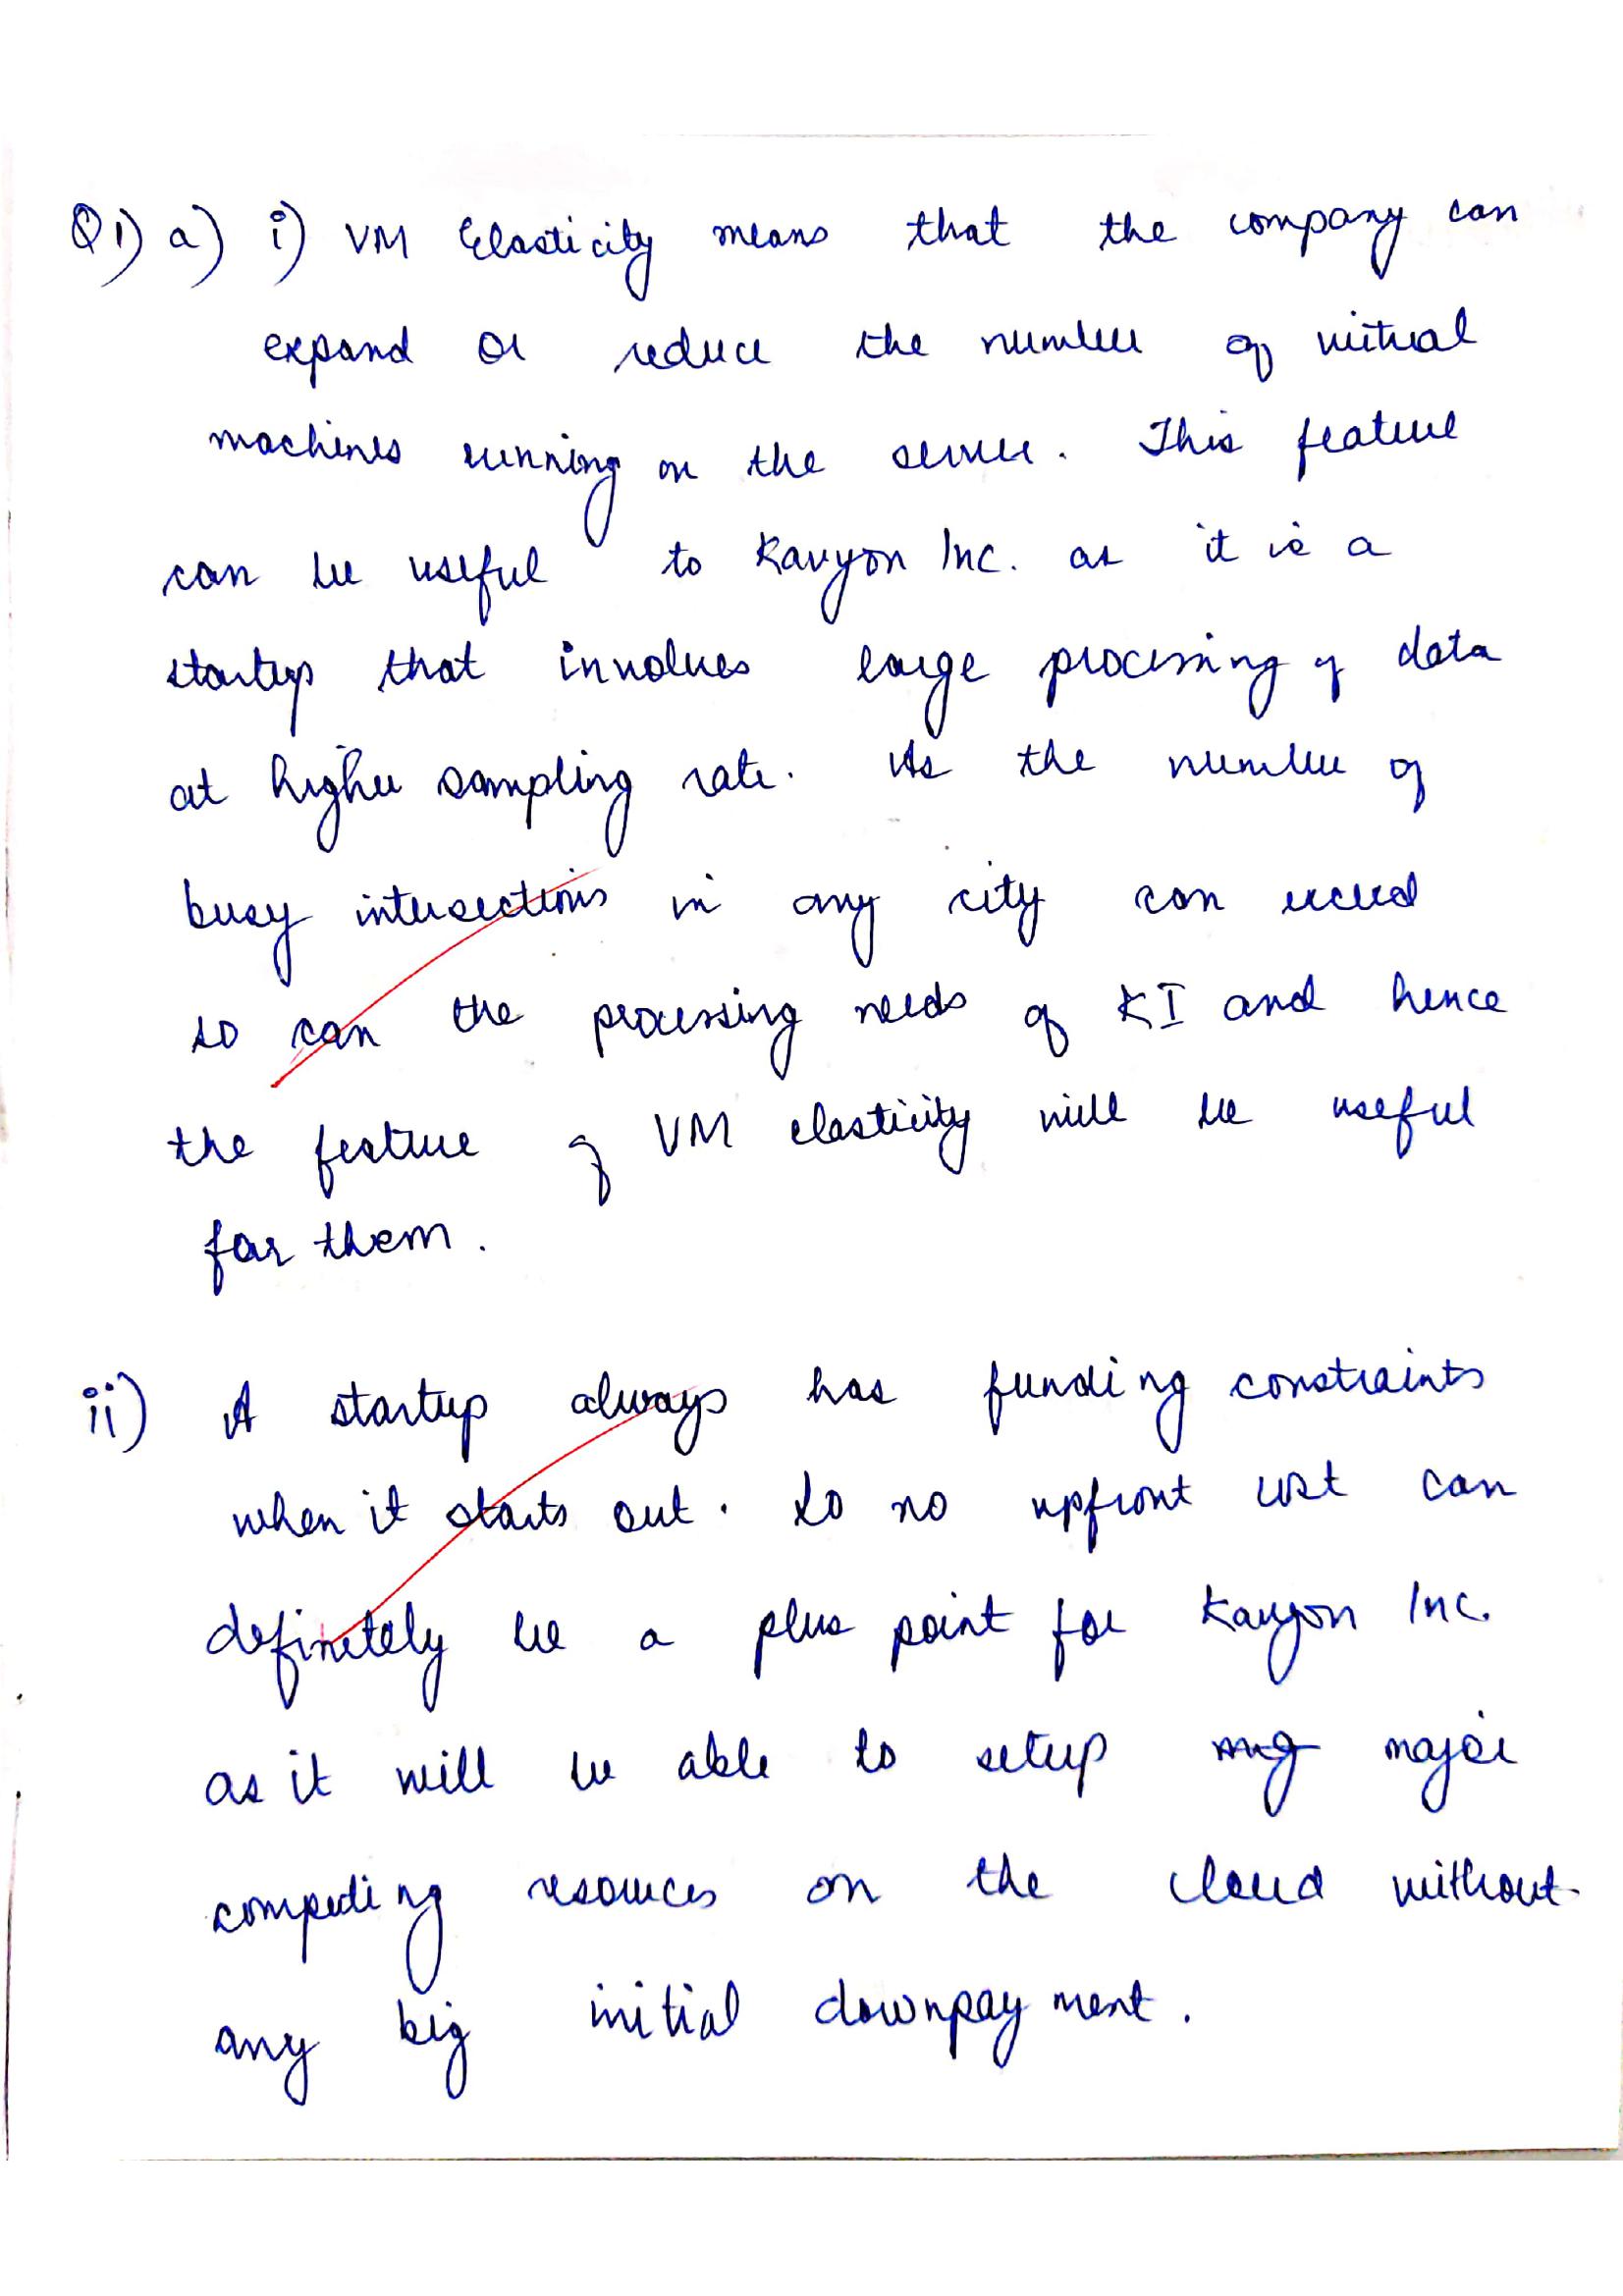 Q1) a) i) VM Elasticity means that the company can
expand or reduce the number of virtual
machines running on the server. This feature
can be useful to Kavyon Inc. as it is a
startup that involves large processing of data
at higher sampling rate. As the number of
busy intersections in any city can exceed
so can the processing needs of KI and hence
the feature of VM elasticity will be useful
for them.
ii) A startup always has funding constraints
when it starts out. So no upfront cost can
definitely be a plus point for Kavyon Inc.
as it will be able to setup major
computing resources on the cloud without
any big initial downpayment.